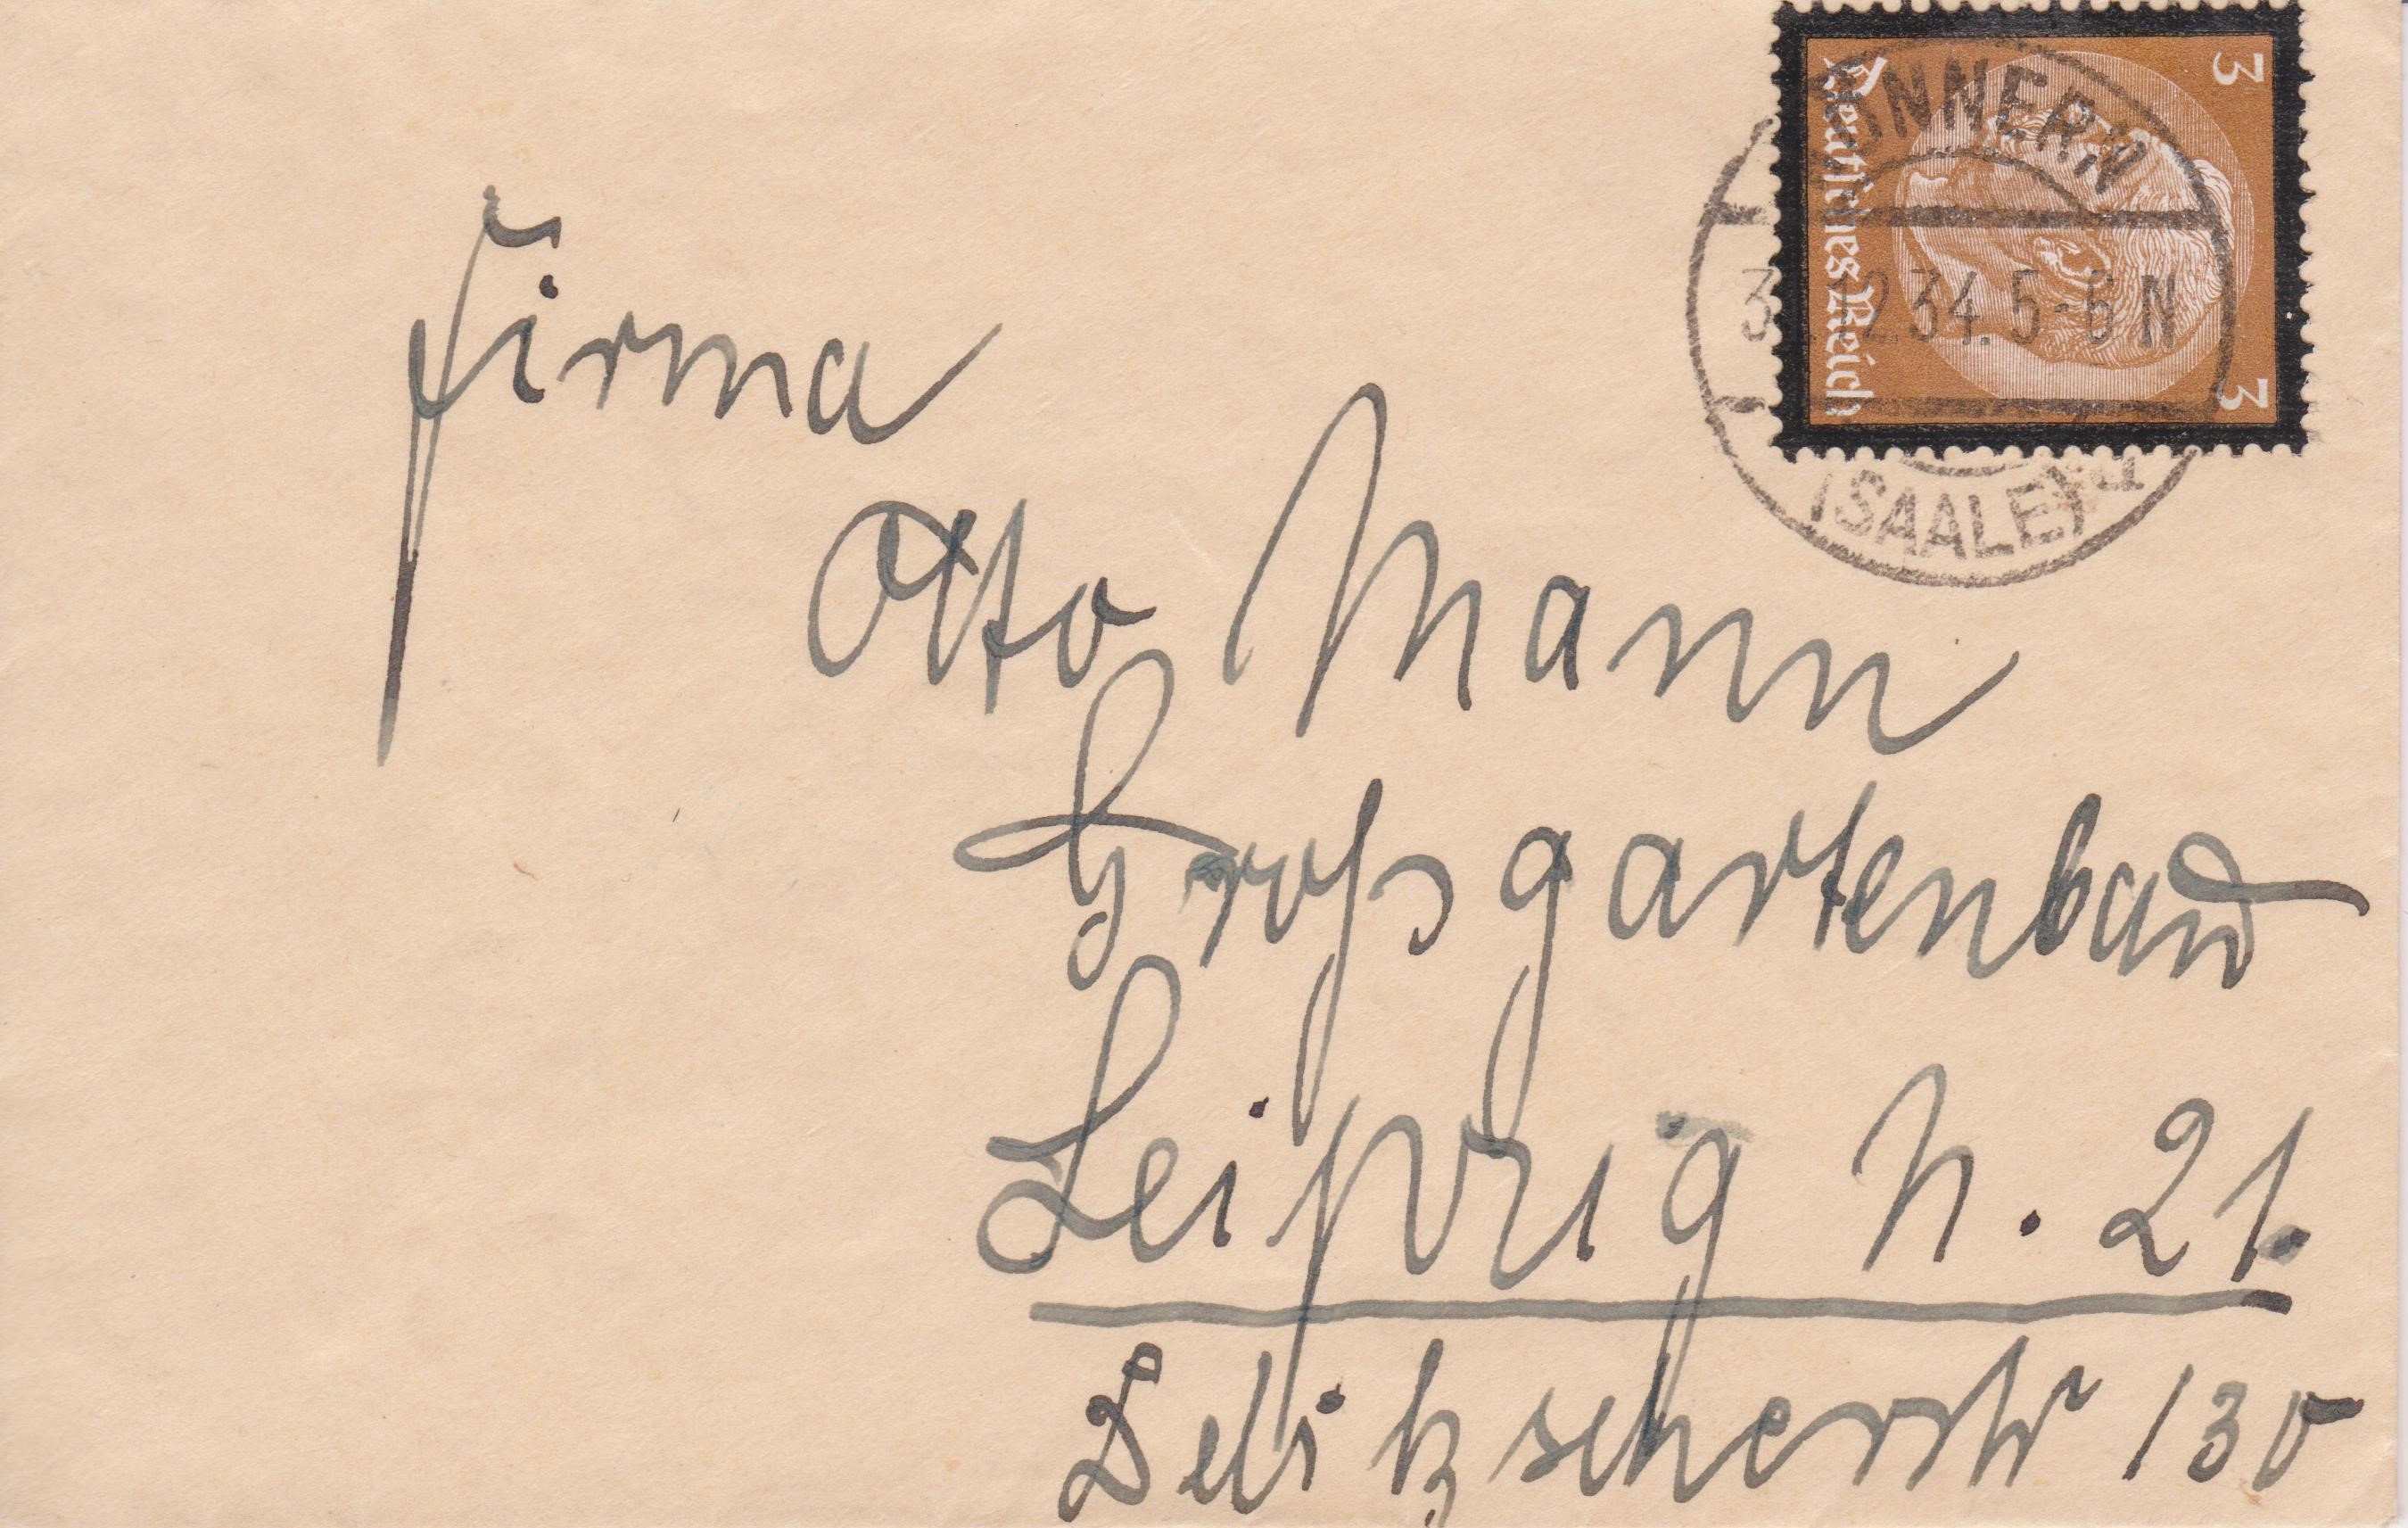 3 3
Deutsches Reich
NNERN
2.34.5-6 N
(SAALE)
Firma
Otto Mann
Großgartenbau
Leipzig N. 21.
Delitzscherstr 130